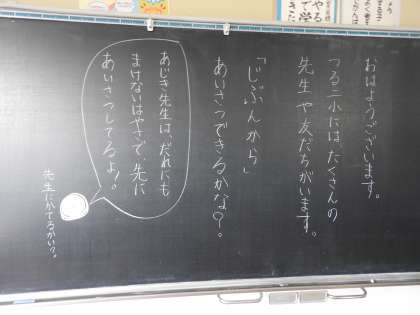 おはようございます。
つる三小には、たくさんの
先生や友だちがいます。
「じぶんから」
あいさつできるかな？。
あじき先生は、だれにも
まけないはやさで、先に
あいさつしてるよ！。
先生にかてるかい？。